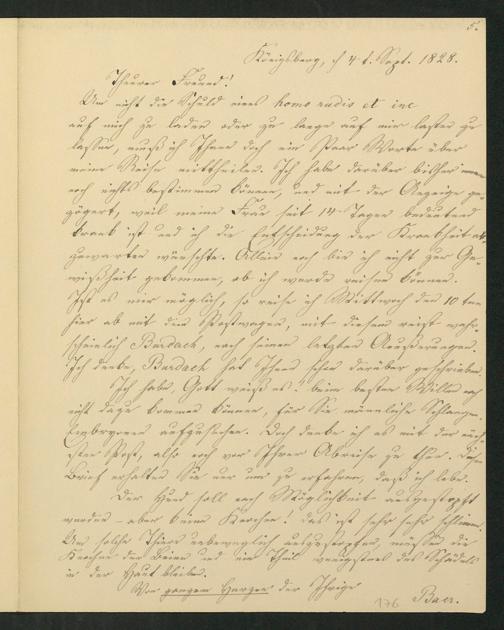 5.
Königsberg, d 4 t. Sept. 1828.
Theurer Freund!
Um nicht die Schuld eines homo rudis et ine
auf mich zu laden oder zu lange auf mir lasten zu
lassen, muß ich Ihnen doch ein Paar Worte über
meine Reise mittheilen. Ich habe darüber bisher
noch nichts bestimmen können, und mit der Anzeige ge-
zögert, weil meine Frau seit 14 Tagen bedeutend
krank ist und ich die Entscheidung der Krankheit
abzuwarten wünschte. Allein noch bin ich nicht zur Ge-
wißheit gekommen, ob ich werde reisen können.
Ist es mir möglich, so reise ich Mittwoch den 10 ten
hier ab mit dem Postwagen, mit diesem reist wahr-
scheinlich Burdach, nach seinen letzten Aeußerungen.
Ich denke, Burdach hat Ihnen schon darüber geschrieben.
Ich habe, Gott weiß es! beim besten Willen noch
nicht dazu kommen können, für Sie männliche Schlangen-
Embryonen aufzusuchen. Doch denke ich es mit der näch-
sten Post, also noch vor Ihrer Abreise zu thun. Diesen
Brief erhalten Sie nur um zu erfahren, daß ich lebe.
Der Hund soll nach Möglichkeit ausgestopft
werden – aber keine Knochen! das ist sehr sehr schlimm.
Um solche Thiere unbeweglich auszustopfen, müssen die
Knochen der Beine und ein Theil wenigstens des Schädels
in der Haut bleiben.
Von ganzem Herzen der Ihrige
Baer.
176